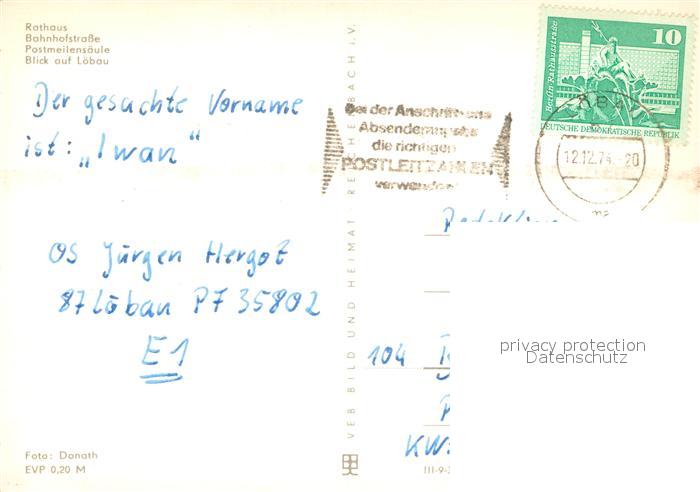 Rathaus
Bahnhofstraße
Postmeilensäule
Blick auf Löbau
Der gesuchte Vorname
ist: „Iwan"
OS Jürgen Hergot
87 Löbau PF 35802
E1
Foto: Donath
EVP 0,20 M
VEB BILD UND HEIMAT REICHENBACH i.V.
Bei der Anschrift und
Absenderangabe
die richtigen
POSTLEITZAHLEN
verwenden
10
Berlin, Rathausstraße
DEUTSCHE DEMOKRATISCHE REPUBLIK
12.12.74.-20
ma
104
KW:
III-9-
privacy protection
Datenschutz